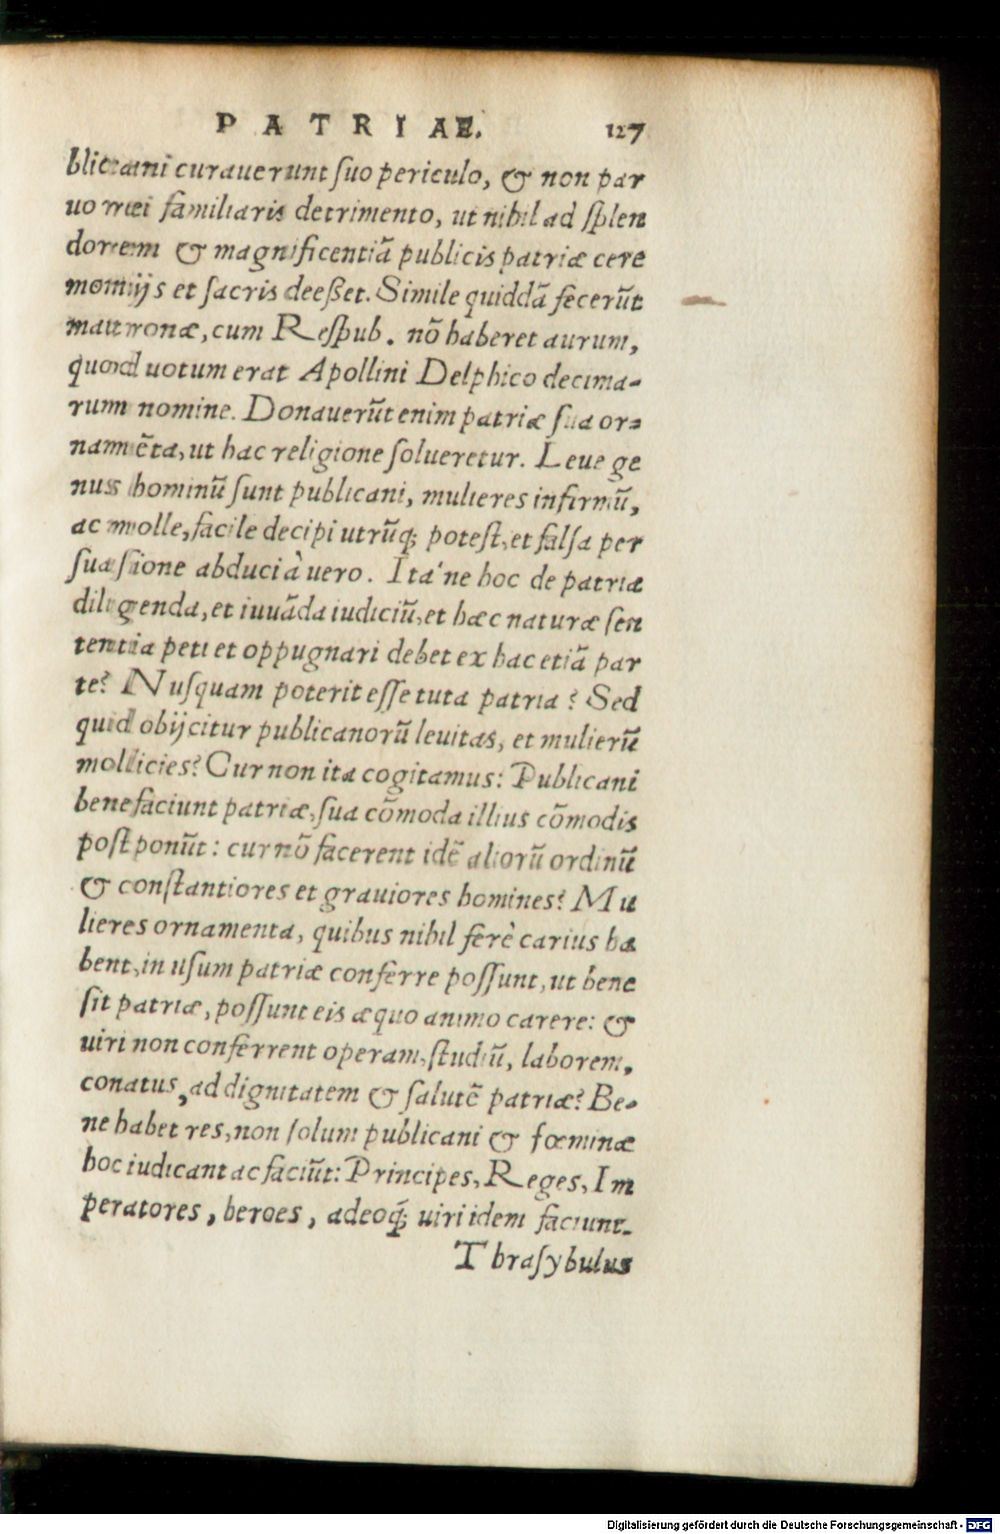 PATRIAE. 127
blicani curauerunt suo periculo, & non par
uo rei familiaris detrimento, ut nihil ad splen
dorem & magnificentiā publicis patriæ cere
monijs et sacris deeßet. Simile quiddā fecerūt
matronæ, cum Respub. nō haberet aurum,
quod uotum erat Apollini Delphico decima-
rum nomine. Donauerūt enim patriæ sua or-
namēta, ut hac religione solueretur. Leue ge
nus hominū sunt publicani, mulieres infirmū,
ac molle, facile decipi utrūq; potest, et falsa per
suasione abduci à uero. Ita'ne hoc de patria
diligenda, et iuuāda iudiciū, et hæc naturæ sen
tentia peti et oppugnari debet ex hac etiā par
te? Nusquam poterit esse tuta patria? Sed
quid obijcitur publicanorū leuitas, et mulierū
mollicies? Cur non ita cogitamus: Publicani
benefaciunt patriæ, sua cōmoda illius cōmodis
postponūt: cur nō facerent idē aliorū ordinū
& constantiores et grauiores homines? Mu
lieres ornamenta, quibus nihil ferè carius ha
bent, in usum patriæ conferre possunt, ut bene
sit patriæ, possunt eis æquo animo carere: &
uiri non conferrent operam, studiū, laborem,
conatus, ad dignitatem & salutē patriæ? Be-
ne habet res, non solum publicani & fœminæ
hoc iudicant ac faciūt: Principes, Reges, Im
peratores, heroes, adeoq; uiri idem faciunt.
Thrasybulus
Digitalisierung gefördert durch die Deutsche Forschungsgemeinschaft - DFG